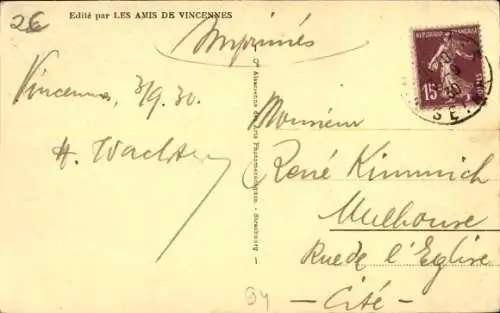 2€
Edité par LES AMIS DE VINCENNES
Imprimés
REPUBLIQUE FRANÇAISE
15
Vincennes, 3/9.30.
H. Wachter
Monsieur
René Kimmich
Mulhouse
Rue de l'Eglise
- Cité -
94
Cie Alsacienne des Arts Photomécaniques. - Strasbourg